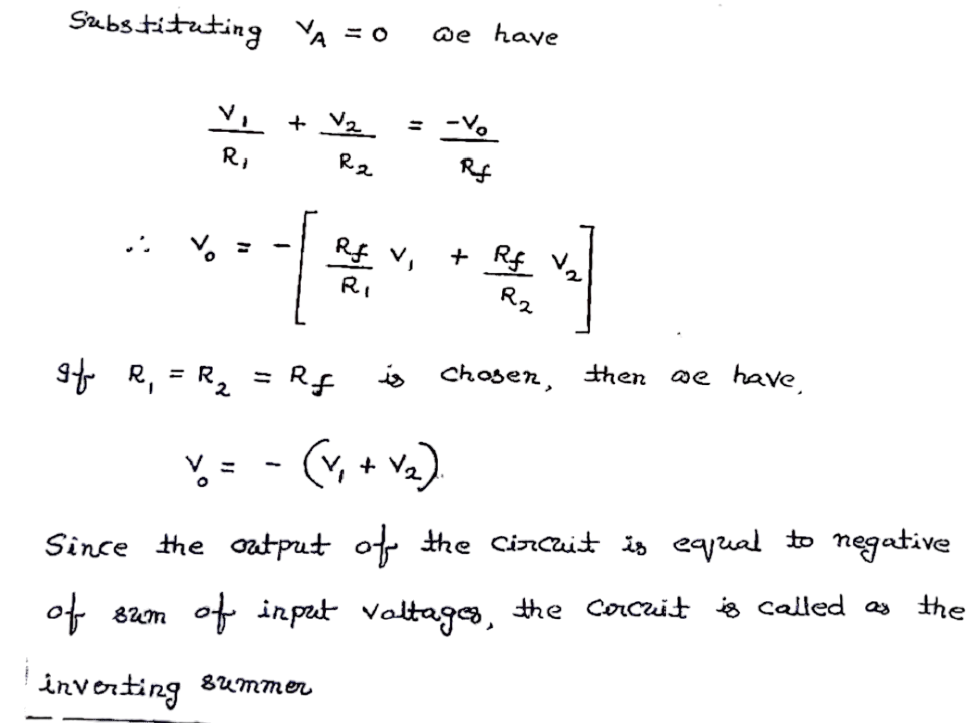 Substituting V_A = 0 we have
V_1/R_1 + V_2/R_2 = -V_o/R_f
∴ V_o = - [ R_f/R_1 V_1 + R_f/R_2 V_2 ]
If R_1 = R_2 = R_f is chosen, then we have,
V_o = - (V_1 + V_2).
Since the output of the circuit is equal to negative
of sum of input voltages, the circuit is called as the
inverting summer